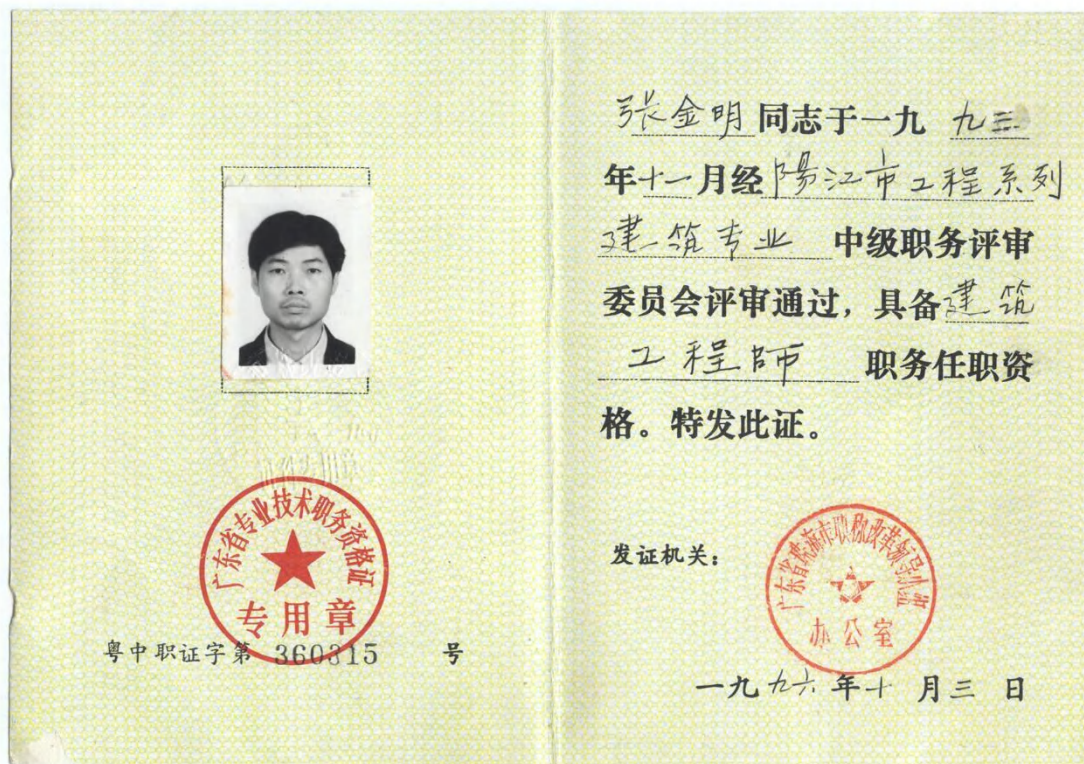 广东省专业技术职务资格证
专用章
粤中职证字第 360315 号
张金明 同志于一九 九三
年十一月经 陽江市工程系列
建筑专业 中级职务评审
委员会评审通过，具备建筑
工程師 职务任职资
格。特发此证。
发证机关：
办公室
一九九六年十月三日